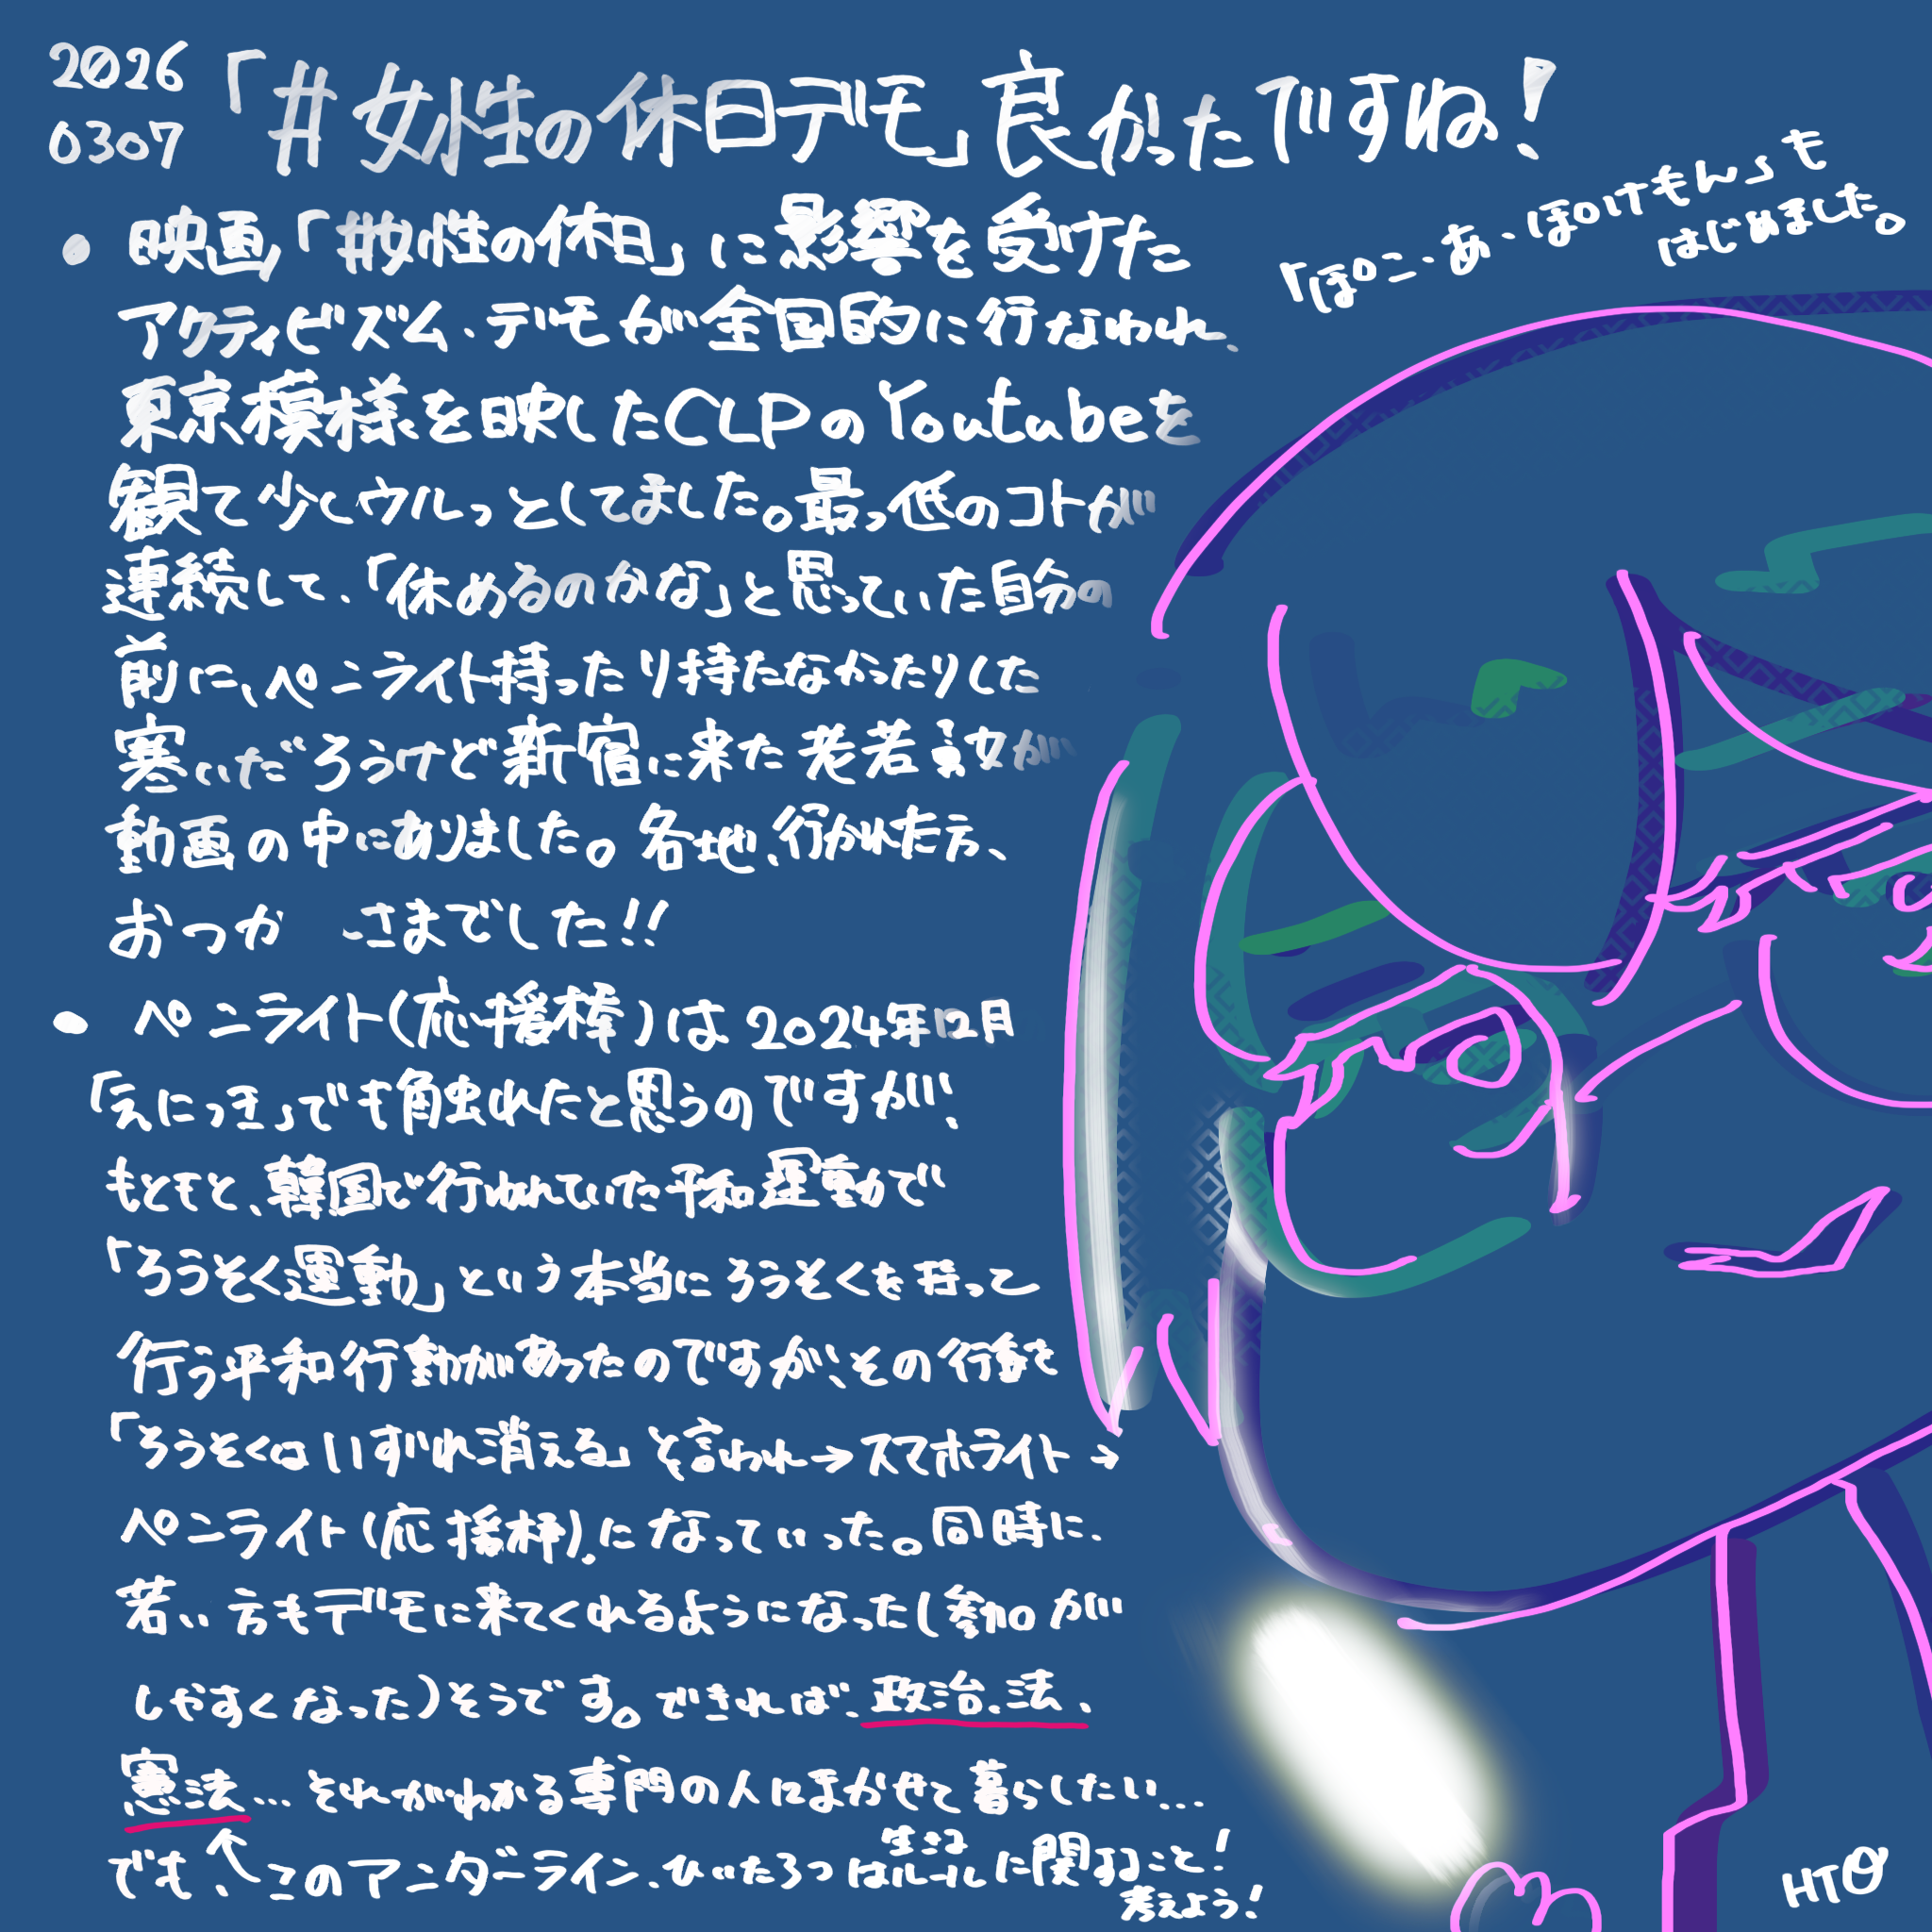 2026
0307
「#女性の休日デモ」良かったですね!
「ぽこ・あ・ぽけもん」も
はじめました。
• 映画「#女性の休日」に影響を受けた
アクティビズム、デモが全国的に行なわれ、
東京模様を映したCLPのYoutubeを
観て少しウルっとしてました。最っ低のコトが
連続して、「休めるのかな」と思っていた自分の
前に、ペンライト持ったり持たなかったりした
寒いだろうけど新宿に来た老若男女が
動画の中にありました。各地、行かれた方、
おつか さまでした!!
• ペンライト(応援棒)は2024年12月
「えにっき」でも触れたと思うのですが、
もともと、韓国で行われていた平和運動で
「ろうそく運動」という本当にろうそくを持って
行う平和行動があったのですが、その行動を
「ろうそくはいずれ消える」と言われ→スマホライト→
ペンライト(応援棒)になっていった。同時に、
若い方もデモに来てくれるようになった(参加が
しやすくなった)そうです。できれば、政治、法、
憲法… それがわかる専門の人にまかせて暮らしたい…
でも、↑このアンダーライン、ひいたろつは生きるルールに関すること!
考えよう!
HTO